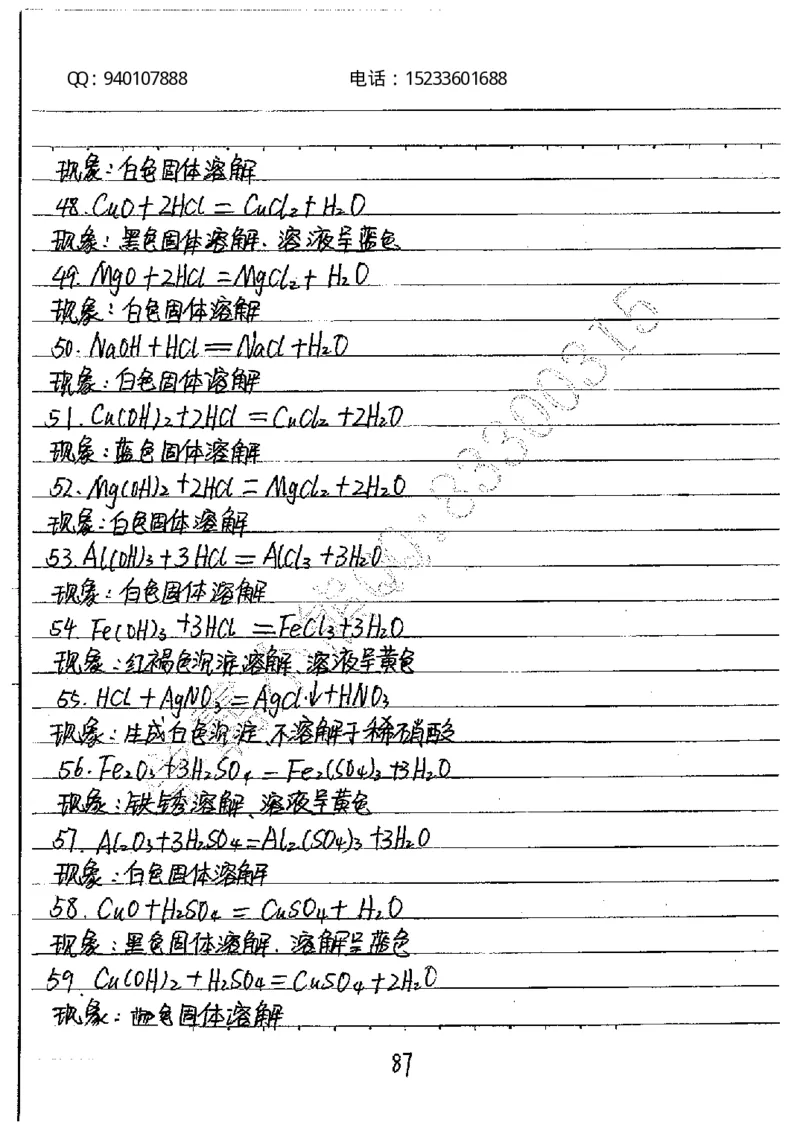 QQ：940107888 电话：15233601688
现象：白色固体溶解
48. CuO+2HCl = CuCl₂+H₂O
现象：黑色固体溶解、溶液呈蓝色
49. MgO+2HCl=MgCl₂+ H₂O
现象：白色固体溶解
50. NaOH+HCl=NaCl+H₂O
现象：白色固体溶解
51. Cu(OH)₂+2HCl=CuCl₂+2H₂O
现象：蓝色固体溶解
52. Mg(OH)₂+2HCl=MgCl₂+2H₂O
现象：白色固体溶解
53. Al(OH)₃+3HCl=AlCl₃+3H₂O
现象：白色固体溶解
54. Fe(OH)₃+3HCl=FeCl₃+3H₂O
现象：红褐色沉淀溶解、溶液呈黄色
55. HCl+AgNO₃=AgCl↓+HNO₃
现象：生成白色沉淀、不溶解于稀硝酸
56. Fe₂O₃+3H₂SO₄=Fe₂(SO₄)₃+3H₂O
现象：铁锈溶解、溶液呈黄色
57. Al₂O₃+3H₂SO₄=Al₂(SO₄)₃+3H₂O
现象：白色固体溶解
58. CuO+H₂SO₄=CuSO₄+H₂O
现象：黑色固体溶解、溶解呈蓝色
59. Cu(OH)₂+H₂SO₄=CuSO₄+2H₂O
现象：色固体溶解
87
QQ:83300315